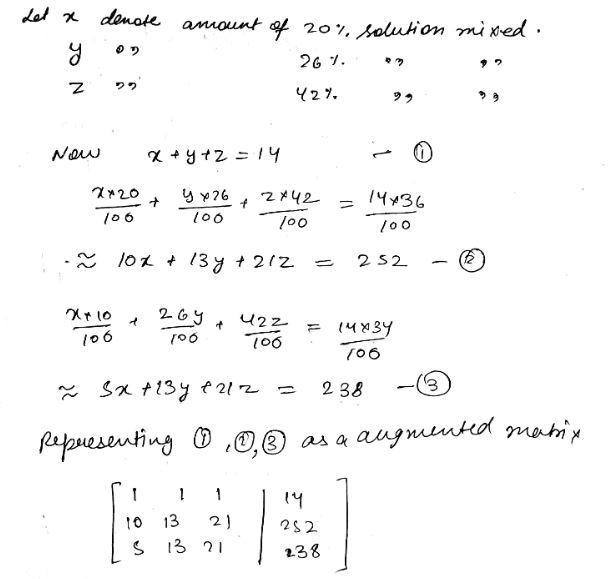 Let x denote amount of 20% solution mixed.
y ,, 26%. ,, ,,
z ,, 42%. ,, ,,
Now x + y + z = 14 - ①
x*20/100 + y*26/100 + z*42/100 = 14*36/100
≈ 10x + 13y + 21z = 252 - ②
x*10/100 + 26y/100 + 42z/100 = 14*34/100
≈ 5x + 13y + 21z = 238 - ③
Representing ①, ②, ③ as a augmented matrix
[ 1 1 1 | 14 ]
[ 10 13 21 | 252 ]
[ 5 13 21 | 238 ]